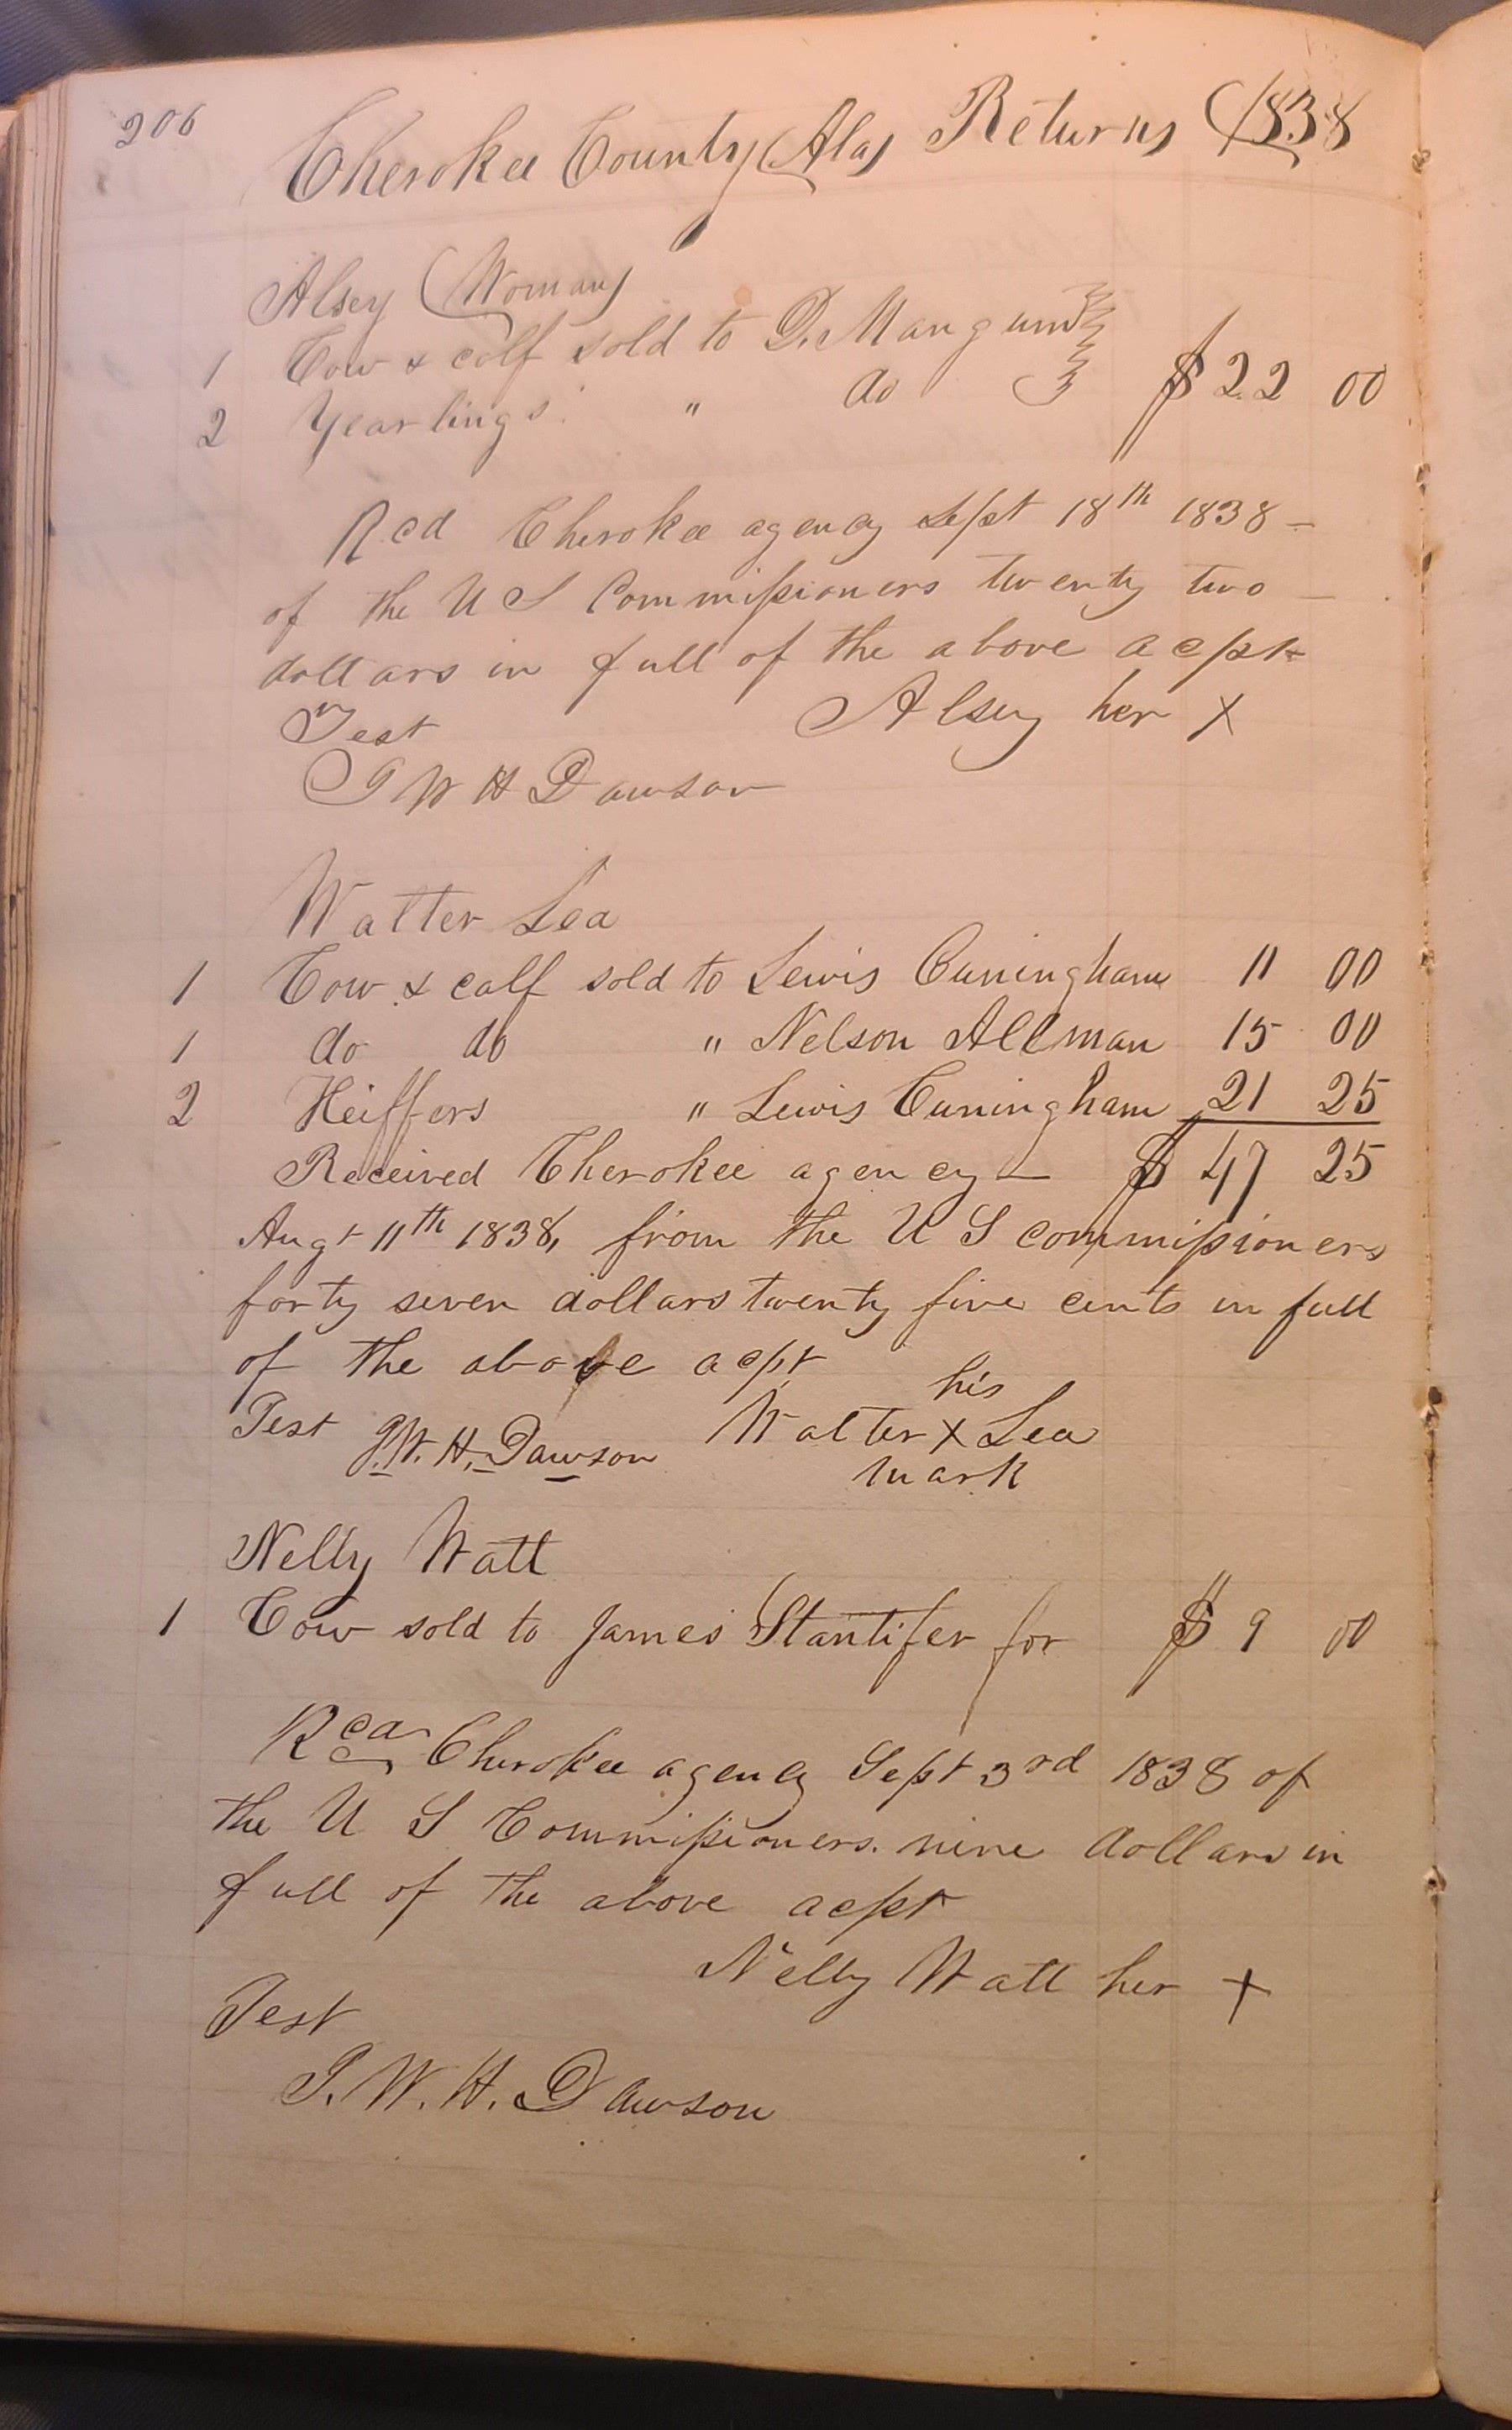 206
Cherokee County (Ala) Returns (1838
Alsey (Woman)
1 Cow & calf sold to D. Mangum
2 Yearlings " do $22 00
Rcd Cherokee agency Sept 18th 1838 —
of the U S Commissioners twenty two —
dollars in full of the above acpt
Test Alsey her X
P W H Dawson
Walter Lea
1 Cow & calf sold to Lewis Cuningham 11 00
1 do do " Nelson Allman 15 00
2 Heiffers " Lewis Cuningham 21 25
Received Cherokee agency — $ 47 25
Augt 11th 1838, from the U S commissioners
forty seven dollars twenty five cents in full
of the above acpt his
Test P. W. H. Dawson Walter X Lea
mark
Nelly Watt
1 Cow sold to James Stantifer for $ 9 00
Rcd Cherokee agency Sept 3rd 1838 of
the U S Commissioners. nine dollars in
full of the above acpt
Nelly Watt her X
Test
P. W. H. Dawson